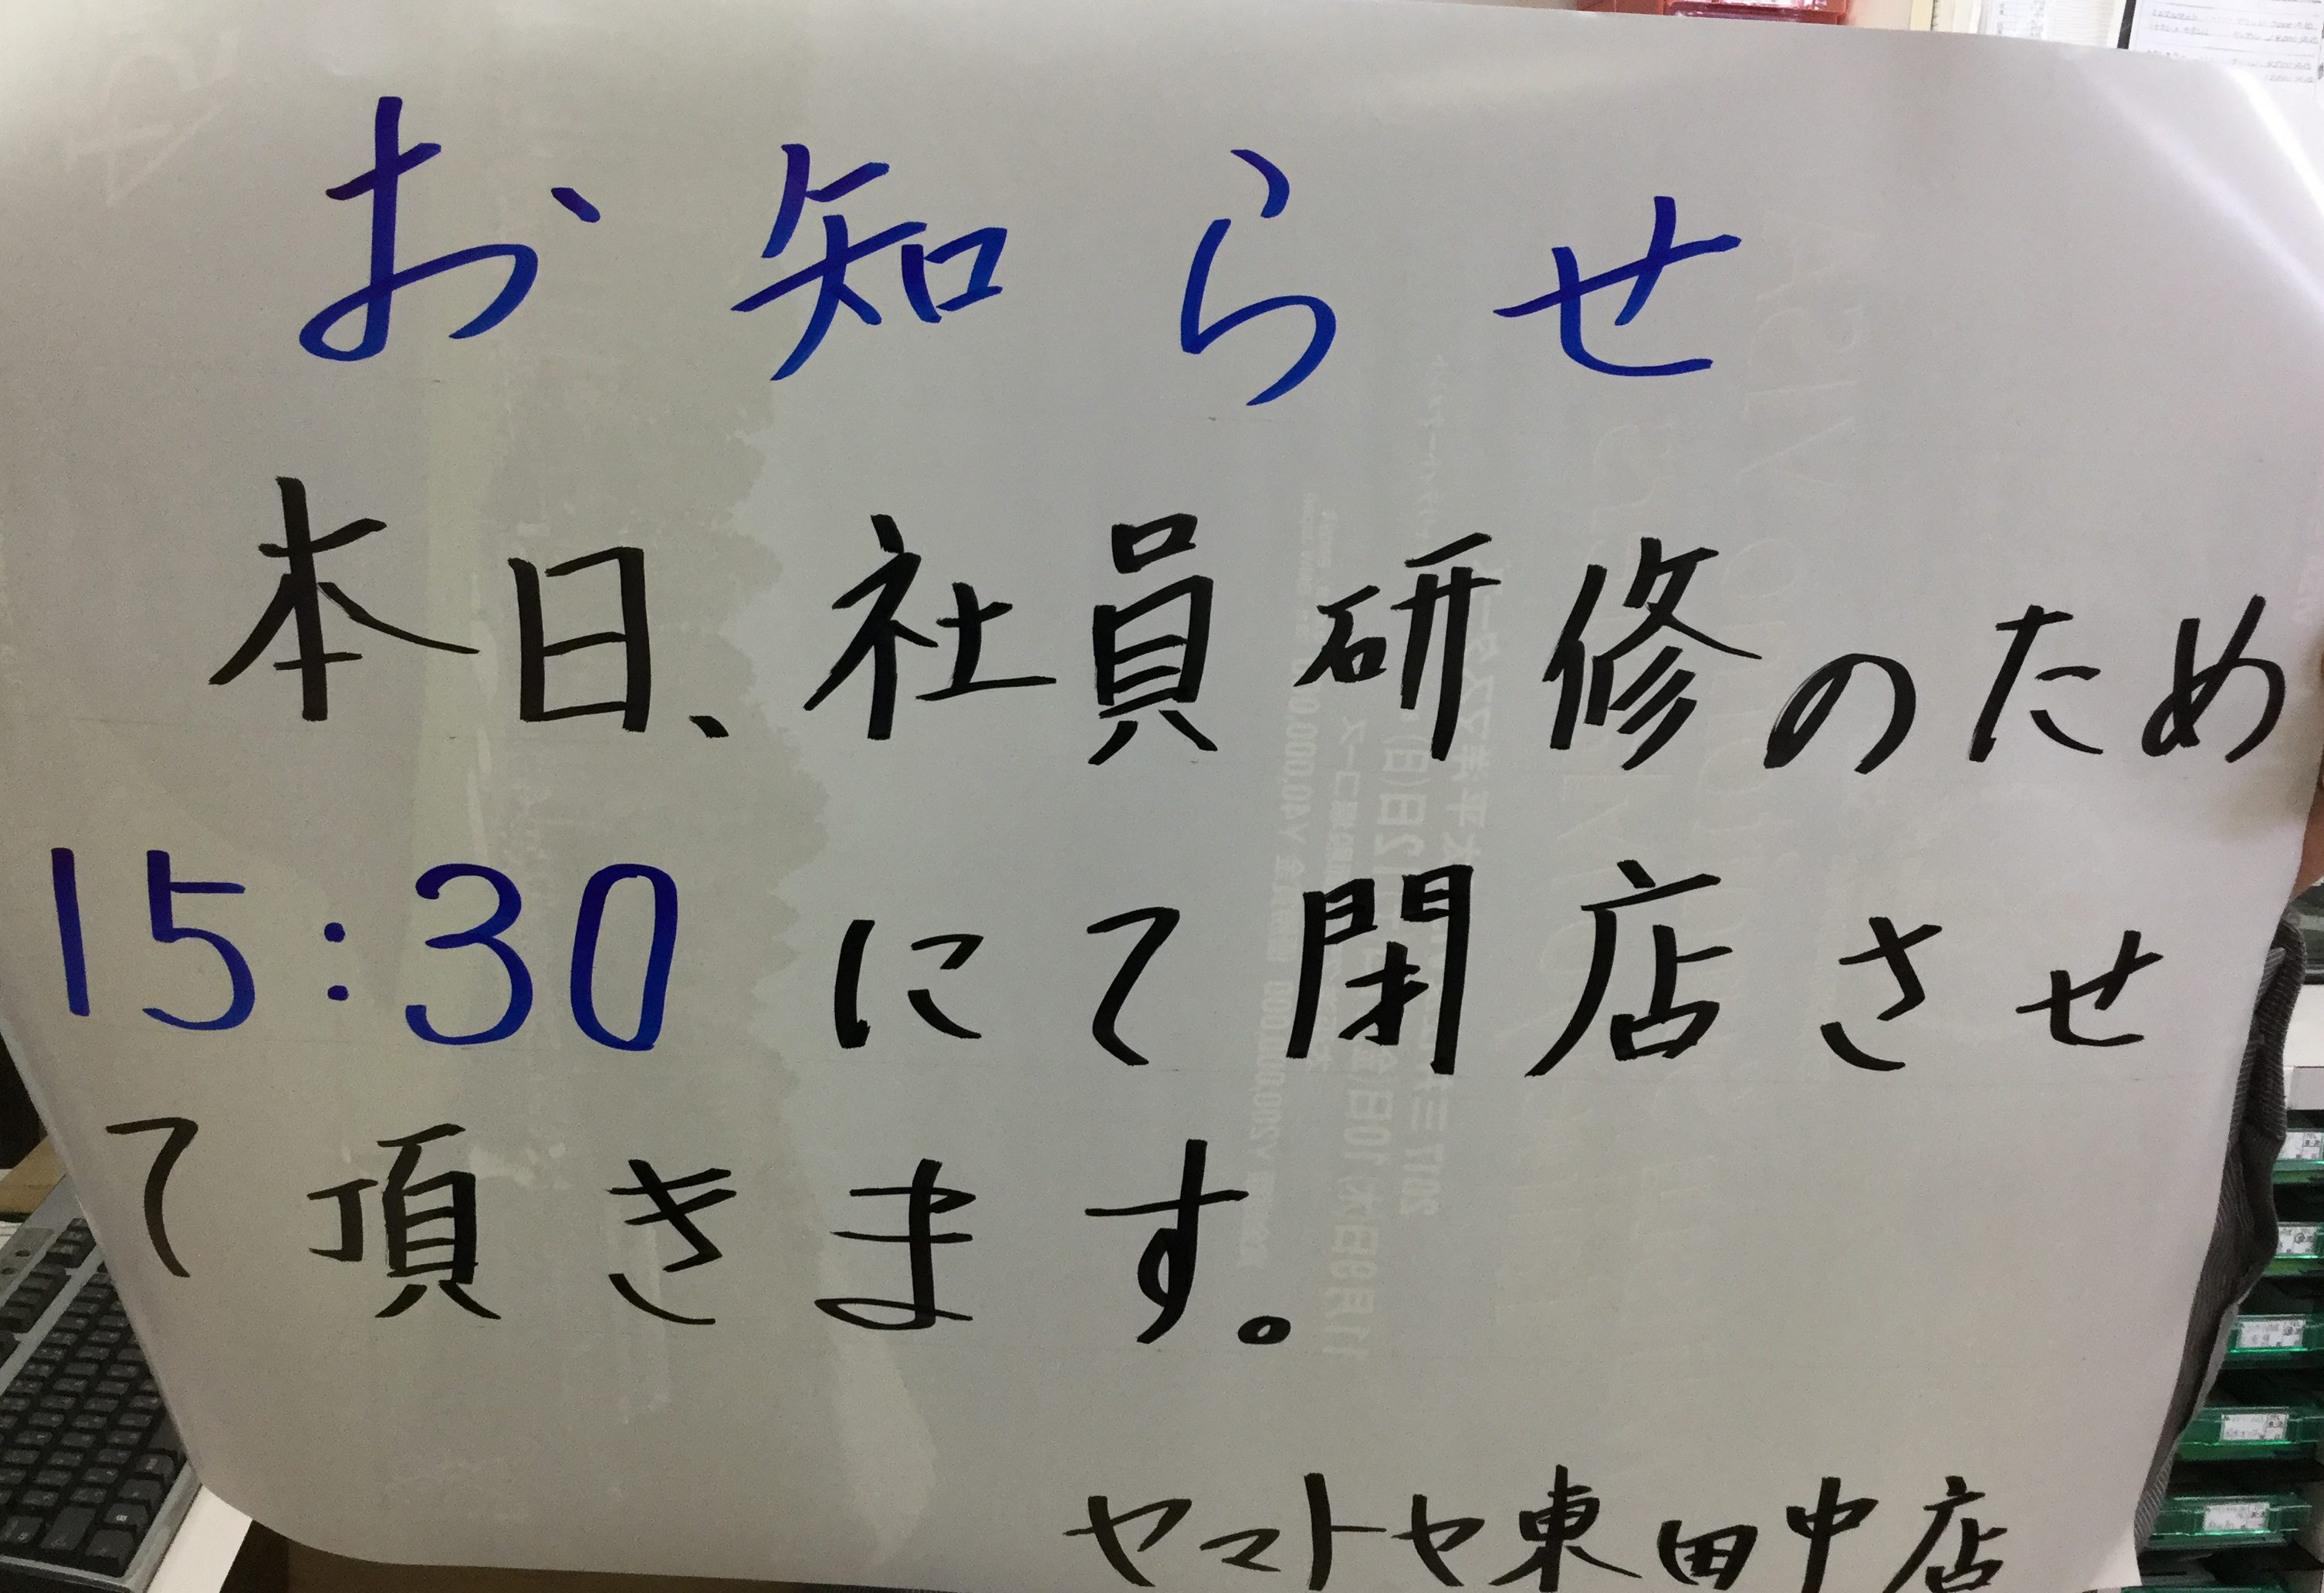 お知らせ
本日、社員研修のため
15:30 にて閉店させ
て頂きます。
ヤマトヤ東田中店